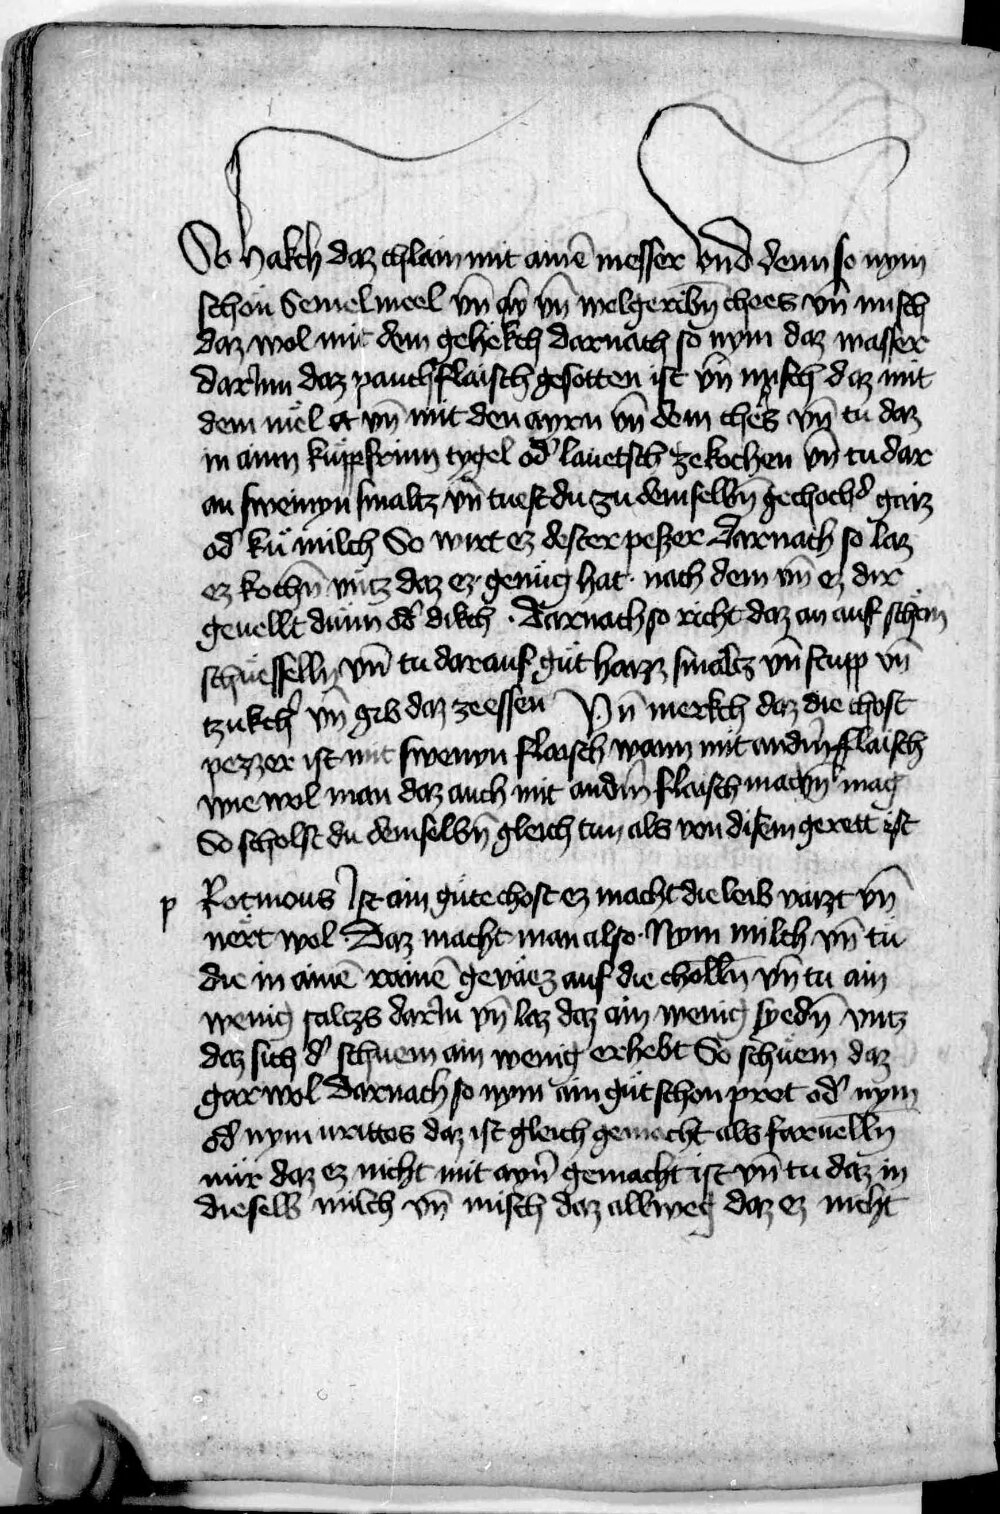 So hakch daz chlain mit ainē messer vnd denn so nym
schon Semelmeel vn̄ ay vn̄ wolgeribn̄ chees vn̄ misch
daz wol mit dem gehëkch darnach so nym daz wasser
darinn daz pauchflaisch gesotten ist vn̄ misch daz mit
dem mel vn̄ mit den ayrn vn̄ dem ches vn̄ tu daz
in ainn kuppfrinn tygel od' lauetsch zekochen vn̄ tu dar
an sweinyn smaltz vn̄ tuest du zu demselbn̄ gechochd' gaiz
od' kü milch So wirt ez dester peszer Darnach so laz
ez kochn̄ vntz daz ez genüg hat · nach dem vn̄ ez dir
geuellt dünn od' dikch · Darnach so richt daz an auf schön
schüsselln vn̄ tu darauf güt haizz smaltz vn̄ stupp vn̄
tzukch' vn̄ gib daz zeessen Vn̄ merkch daz die chost
pezzer ist mit sweinyn flaisch wann mit andn̄ flaisch
wie wol man daz auch mit andn̄ flaisch machn̄ mag
So scholst du demselbn̄ gleich tun als von disem gerett ist
p Rotmous Ist ain güte chost ez macht die leib vaizt vn̄
nert wol · Daz macht man also · Nym milch vn̄ tü
die in ainē rainē geuäez auf die cholln̄ vn̄ tu ain
wenig saltzs darin vn̄ laz daz ain wenig syedn̄ vntz
daz sich d' schuem ain wenig erhebt So schuem daz
gar wol Darnach so nym ain güt schon prot od' nym
od' nym daz ist gleich gemacht als faruelln
nür daz ez nicht mit ayrn gemacht ist vn̄ tu daz in
dieselb milch vn̄ misch daz allweg daz ez nicht